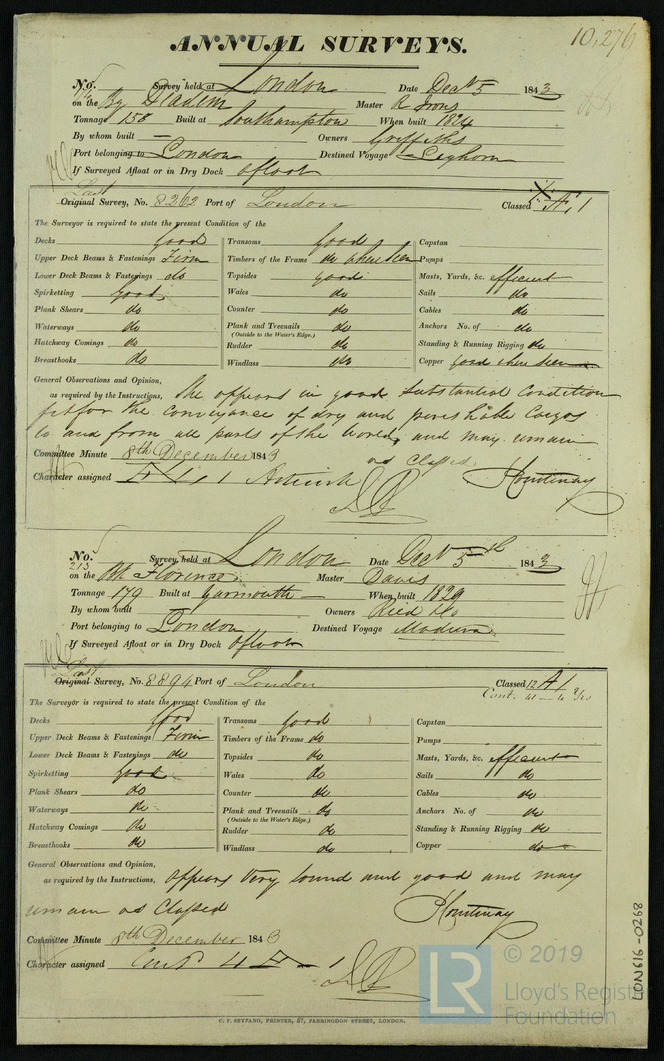 10,276
ANNUAL SURVEYS.
No. Survey held at London Date Decr 5 1843
on the Bg Diadem Master R Irons
Tonnage 158 Built at Southampton When built 1824
By whom built — Owners Griffiths
Port belonging to London Destined Voyage Leghorn
If Surveyed Afloat or in Dry Dock afloat
Last
Original Survey, No. 8262 Port of London Classed Æ 1
The Surveyor is required to state the present Condition of the
Decks good Transoms good Capstan
Upper Deck Beams & Fastenings Firm Timbers of the Frame do where seen Pumps
Lower Deck Beams & Fastenings do Topsides good Masts, Yards, &c. efficient
Spirketting good Wales do Sails do
Plank Shears do Counter do Cables do
Waterways do Plank and Treenails do Anchors No. of do
(Outside to the Water's Edge.)
Hatchway Comings do Rudder do Standing & Running Rigging do
Breasthooks do Windlass do Copper good where seen
General Observations and Opinion,
as required by the Instructions, She appears in good substantial Condition
fit for the conveyance of dry and perishable Cargos
to and from all parts of the World, and may remain
as Classed
Committee Minute 8th December 1843
Character assigned Æ 1 Asterisk
PCourtenay
No. Survey held at London Date Decr 5th 1843
213
on the Bk Florence Master Davis
Tonnage 179 Built at Yarmouth When built 1829
By whom built Owners Reid & Co
Port belonging to London Destined Voyage Madeira
If Surveyed Afloat or in Dry Dock afloat
Last
Original Survey, No. 8894 Port of London Classed 12 A 1
Cont.
The Surveyor is required to state the present Condition of the
Decks good Transoms good Capstan
Upper Deck Beams & Fastenings Firm Timbers of the Frame do Pumps
Lower Deck Beams & Fastenings do Topsides do Masts, Yards, &c. efficient
Spirketting good Wales do Sails do
Plank Shears do Counter do Cables do
Waterways do Plank and Treenails do Anchors No. of do
(Outside to the Water's Edge.)
Hatchway Comings do Rudder do Standing & Running Rigging do
Breasthooks do Windlass do Copper do
General Observations and Opinion,
as required by the Instructions, appears Very sound and good and may
remain as Classed
PCourtenay
Committee Minute 8th December 1843
Character assigned Cont 4 A 1
C. F. SEYFANG, PRINTER, 57, FARRINGDON STREET, LONDON.
LR © 2019
Lloyd's Register
Foundation
LON616-0268